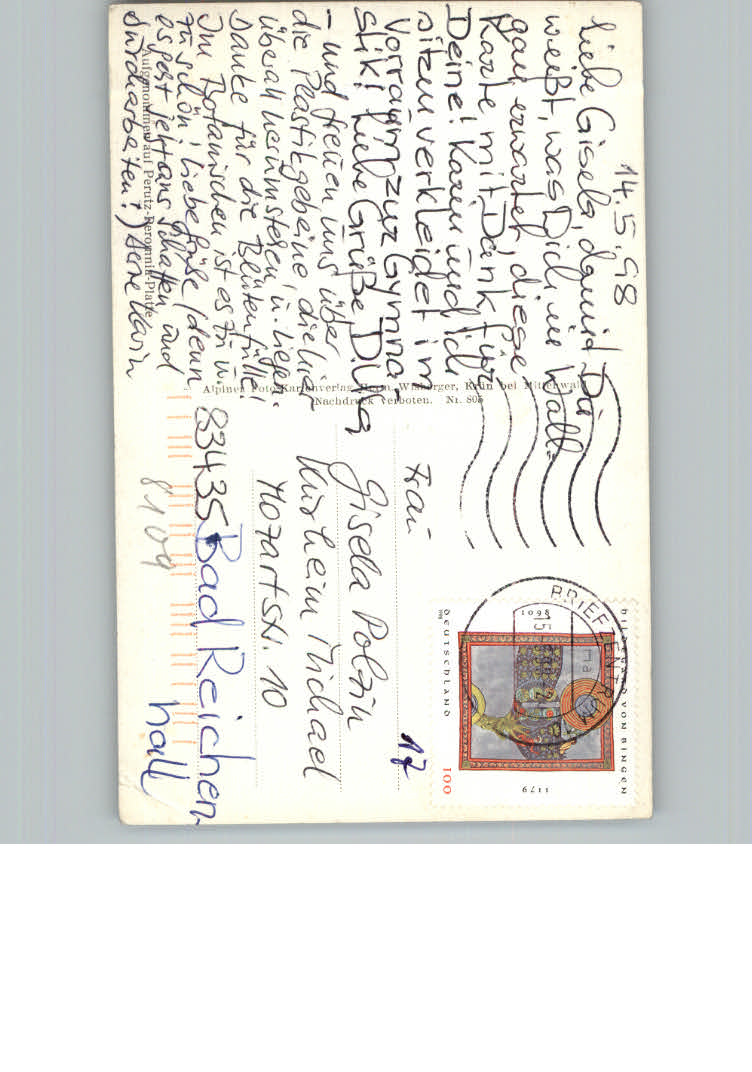 14.5.98
Liebe Gisela, damit Du
weißt, was Dich im Wall-
gau erwartet, diese
Karte mit Dank für
Deine! Karin und ich
sitzen verkleidet im
Vorraum zur Gymna-
stik! Liebe Grüße D.
– und freuen uns über
die Plastikgebeine, die hier
überall herumstehen u. liegen.
Danke für die Blütenfülle!
Im Botanischen ist es zu u.
zu schön! Liebe Grüße (denn
es geht jetzt ans Schaffen und
Durcharbeiten!) Deine Karin
Aufgenommen auf Perutz-Peromnia-Platte
Alpiner Foto-Kartenverlag Wißberger, Krün bei Mittenwald
Nachdruck verboten. Nr. 805
Frau
Gisela Polzin
Kurheim Michael
Mozartstr. 10
83435 Bad Reichen-
hall
17
8109
BRIEFZENTRUM
15
HILDEGARD VON BINGEN
1098
1179
DEUTSCHLAND
100